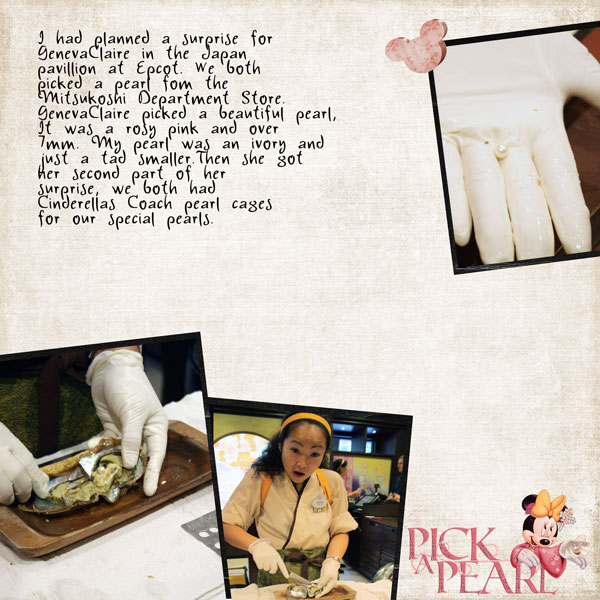 I had planned a surprise for
GenevaClaire in the Japan
pavillion at Epcot. We both
picked a pearl fom the
Mitsukoshi Department Store.
GenevaClaire picked a beautiful pearl,
It was a rosy pink and over
7mm. My pearl was an ivory and
just a tad smaller.Then she got
her second part of her
surprise, we both had
Cinderellas Coach pearl cages
for our special pearls.
PICK
A
PEARL